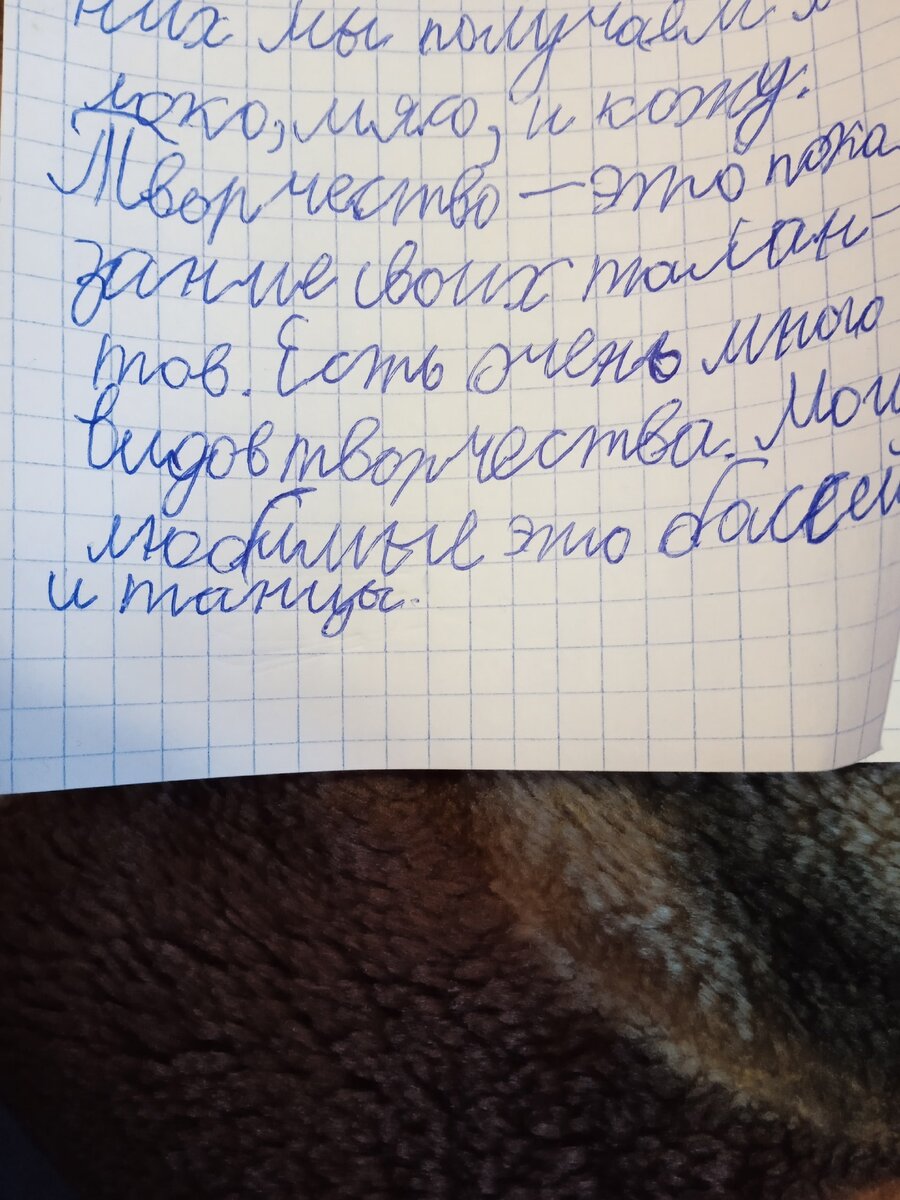 них мы получаем м
локо, мяко, и кожу.
Творчество — это пока
зание своих талан-
тов. Есть очень много
видов творчества. Мои
любимые это бассей
и танцы.